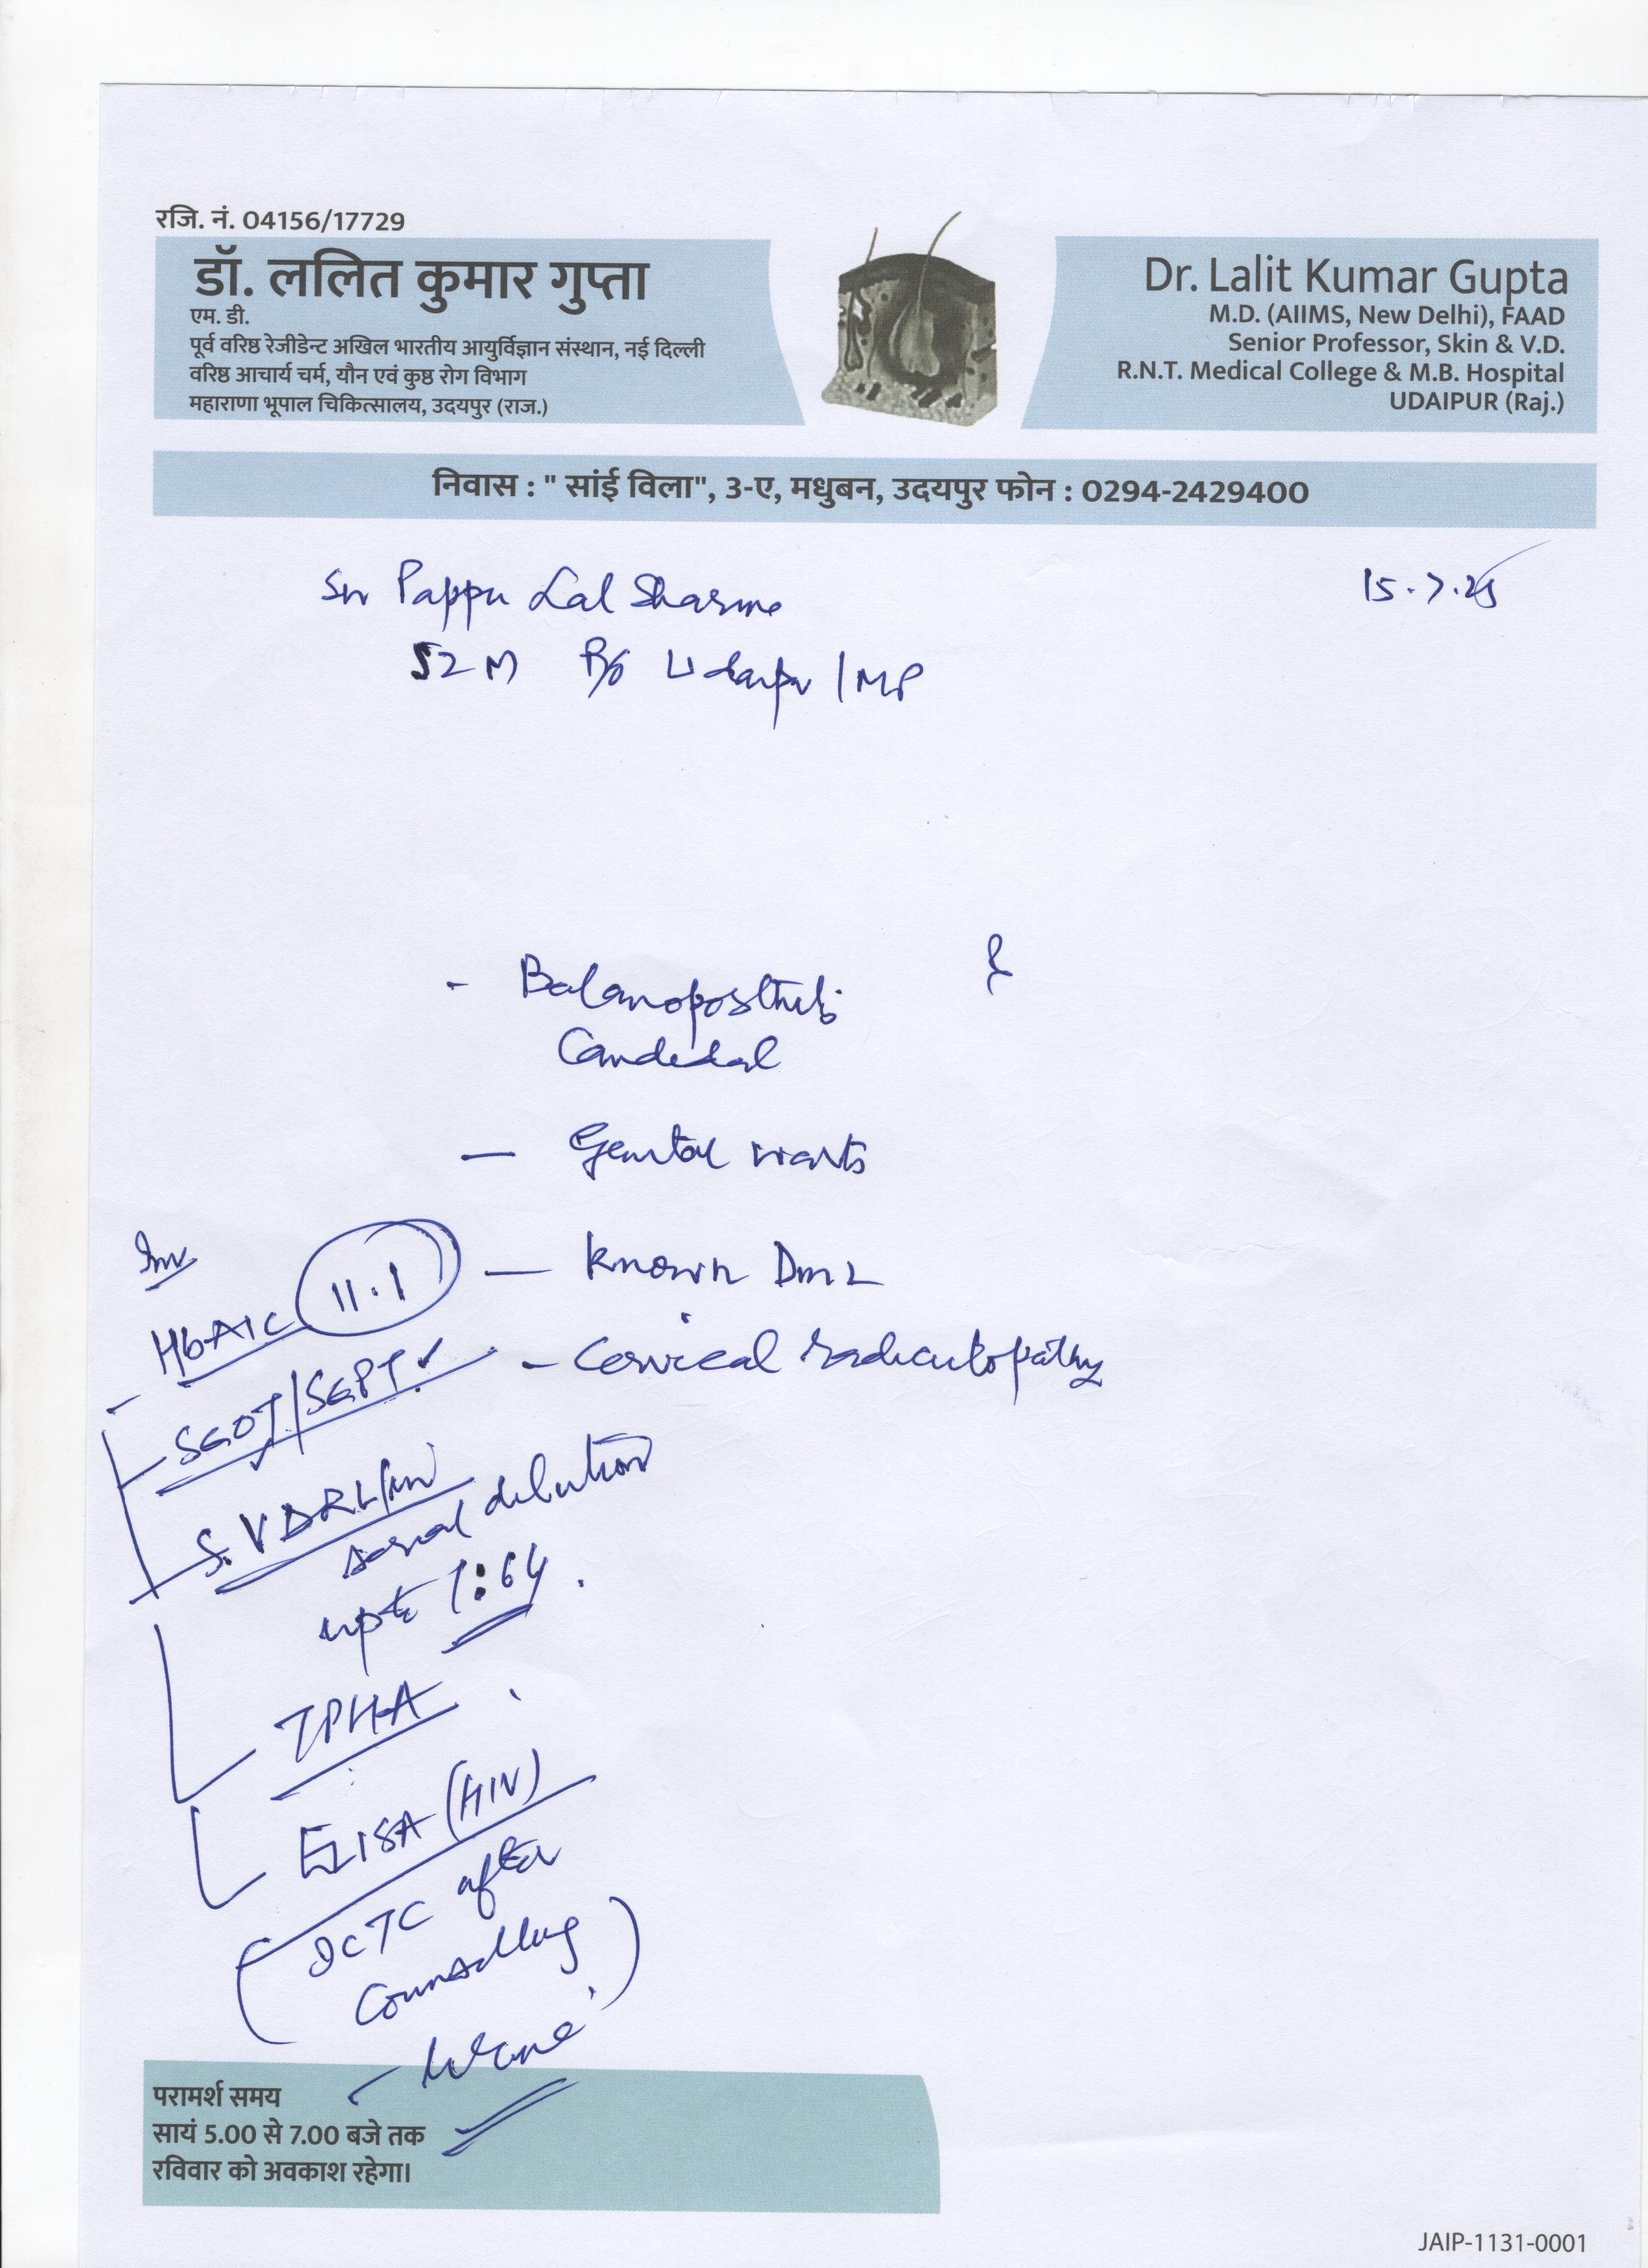 रजि. नं. 04156/17729
डॉ. ललित कुमार गुप्ता
एम. डी.
पूर्व वरिष्ठ रेजीडेन्ट अखिल भारतीय आयुर्विज्ञान संस्थान, नई दिल्ली
वरिष्ठ आचार्य चर्म, यौन एवं कुष्ठ रोग विभाग
महाराणा भूपाल चिकित्सालय, उदयपुर (राज.)
Dr. Lalit Kumar Gupta
M.D. (AIIMS, New Delhi), FAAD
Senior Professor, Skin & V.D.
R.N.T. Medical College & M.B. Hospital
UDAIPUR (Raj.)
निवास : " सांई विला", 3-ए, मधुबन, उदयपुर फोन : 0294-2429400
Pappu Lal Sharma
15.7.25
52 M R/o Udaipur / MP
- Balanoposthitis
Candidal
- Genital warts
Inv
HbA1C 11.1
- Known DM2
- Cervical radiculopathy
SGOT/SGPT ✓
S. VDRL/
serial dilution
upto 1:64.
TPHA
ELISA (HIV)
(ICTC after
Counselling)
- Urine
परामर्श समय
सायं 5.00 से 7.00 बजे तक
रविवार को अवकाश रहेगा।
JAIP-1131-0001